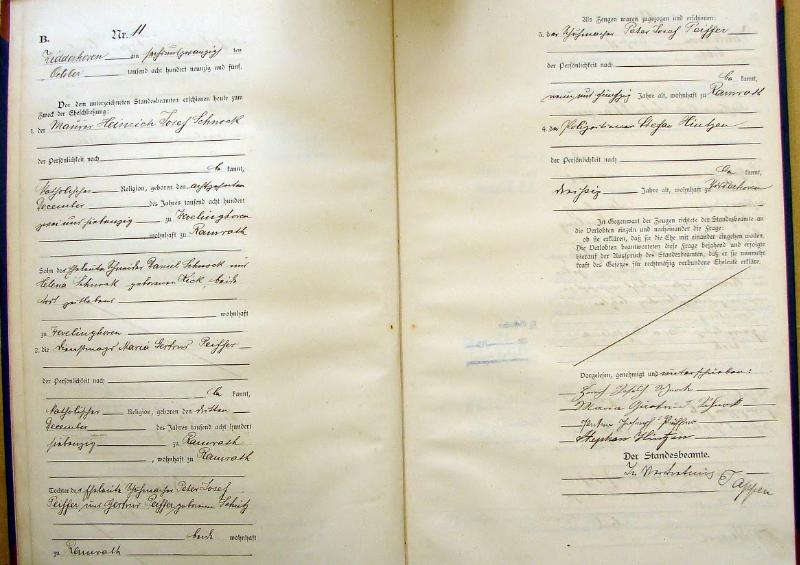 B. Nr. 11
Nedderhoven am sechsundzwanzigsten
October tausend acht hundert neunzig und fünf.
Vor dem unterzeichneten Standesbeamten erschienen heute zum
Zweck der Eheschließung:
1. der Maurer Heinrich Josef Schnock
der Persönlichkeit nach
be kannt,
katholischer Religion, geboren den achtzehnten
December des Jahres tausend acht hundert
zwei und siebenzig zu Hevelinghoven
wohnhaft zu Ramrath
Sohn der Eheleute Schneider Daniel Schnock und
Helena Schnock geborenen Keck, beide
dort zeitlebens
wohnhaft
zu Hevelinghoven
2. die Dienstmagd Maria Gertrud Peiffer
der Persönlichkeit nach
be kannt,
katholischer Religion, geboren den dritten
December des Jahres tausend acht hundert
siebenzig zu Ramrath
, wohnhaft zu Ramrath
Tochter der Eheleute Schuhmacher Peter Josef
Peiffer und Gertrud Peiffer geborenen Schütz
beide wohnhaft
zu Ramrath
Als Zeugen waren zugezogen und erschienen:
3. der Schuhmacher Peter Josef Peiffer
der Persönlichkeit nach
be kannt,
neun und fünfzig Jahre alt, wohnhaft zu Ramrath
4. der Polizeidiener Stefan Hintzen
der Persönlichkeit nach
be kannt,
dreißig Jahre alt, wohnhaft zu
In Gegenwart der Zeugen richtete der Standesbeamte an
die Verlobten einzeln und nacheinander die Frage:
ob sie erklären, daß sie die Ehe mit einander eingehen wollen.
Die Verlobten beantworteten diese Frage bejahend und erfolgte
hierauf der Ausspruch des Standesbeamten, daß er sie nunmehr
kraft des Gesetzes für rechtmäßig verbundene Eheleute erkläre.
Vorgelesen, genehmigt und unterschrieben:
Josef
Maria Gertrud Schnock
Joseph Peiffer
Stephan Hintzen
Der Standesbeamte.
In Vertretung
Tappen